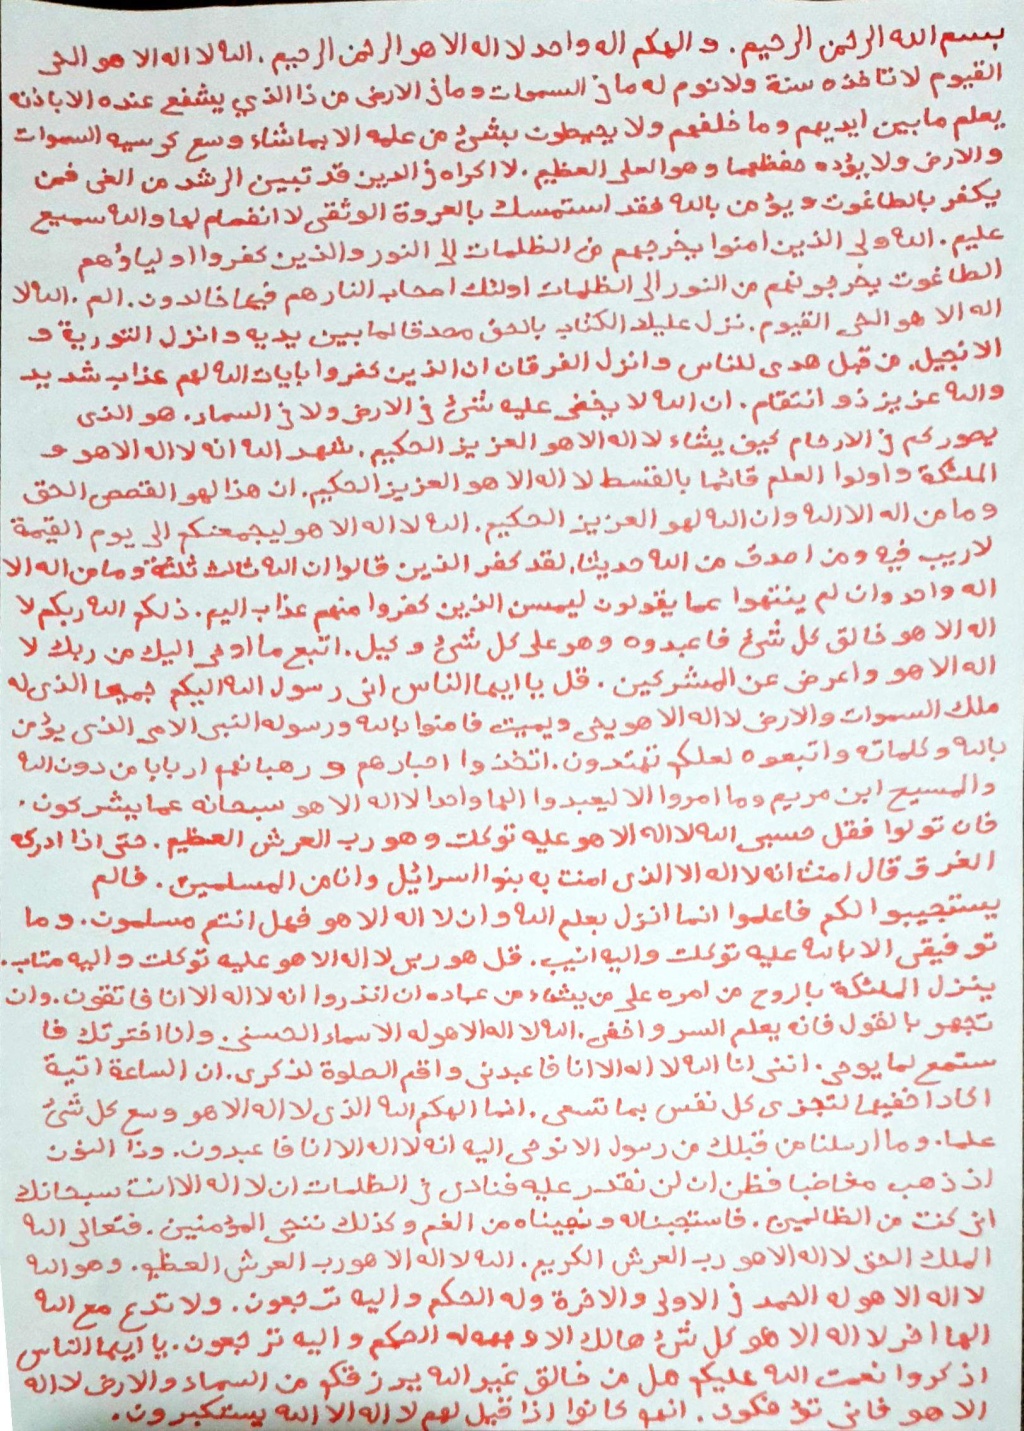 بسم الله الرحمن الرحيم. و الهكم اله واحد لا اله الا هو الرحمن الرحيم. الله لا اله الا هو الحى
القيوم لا تاخذه سنة ولا نوم له ما فى السموات وما فى الارض من ذا الذي يشفع عنده الا باذنه
يعلم ما بين ايديهم وما خلفهم ولا يحيطون بشئ من علمه الا بما شاء وسع كرسيه السموات
والارض ولا يؤده حفظهما وهو العلى العظيم. لا اكراه فى الدين قد تبين الرشد من الغى فمن
يكفر بالطاغوت و يؤمن بالله فقد استمسك بالعروة الوثقى لا انفصام لها والله سميع
عليم. الله ولى الذين امنوا يخرجهم من الظلمات الى النور والذين كفروا اولياؤهم
الطاغوت يخرجونهم من النور الى الظلمات اولئك اصحاب النار هم فيها خالدون. الم. الله لا
اله الا هو الحى القيوم. نزل عليك الكتاب بالحق مصدقا لما بين يديه وانزل التورية و
الانجيل. من قبل هدى للناس وانزل الفرقان ان الذين كفروا بايات الله لهم عذاب شديد
والله عزيز ذو انتقام. ان الله لا يخفى عليه شئ فى الارض ولا فى السماء. هو الذى
يصوركم فى الارحام كيف يشاء لا اله الا هو العزيز الحكيم. شهد الله انه لا اله الا هو و
الملئكة واولوا العلم قائما بالقسط لا اله الا هو العزيز الحكيم. ان هذا لهو القصص الحق
وما من اله الا الله وان الله لهو العزيز الحكيم. الله لا اله الا هو ليجمعنكم الى يوم القيمة
لا ريب فيه ومن اصدق من الله حديثا. لقد كفر الذين قالوا ان الله ثالث ثلثة وما من اله الا
اله واحد وان لم ينتهوا عما يقولون ليمسن الذين كفروا منهم عذاب اليم. ذلكم الله ربكم لا
اله الا هو خالق كل شئ فاعبدوه وهو على كل شئ وكيل. اتبع ما اوحى اليك من ربك لا
اله الا هو واعرض عن المشركين. قل يا ايها الناس انى رسول الله اليكم جميعا الذى له
ملك السموات والارض لا اله الا هو يحى ويميت فامنوا بالله ورسوله النبى الامى الذى يؤمن
بالله وكلماته واتبعوه لعلكم تهتدون. اتخذوا احبارهم و رهبانهم اربابا من دون الله
والمسيح ابن مريم وما امروا الا ليعبدوا الها واحدا لا اله الا هو سبحانه عما يشركون.
فان تولوا فقل حسبى الله لا اله الا هو عليه توكلت وهو رب العرش العظيم. حتى اذا ادركه
الغرق قال امنت انه لا اله الا الذى امنت به بنوا اسرائيل وانا من المسلمين. فالم
يستجيبوا لكم فاعلموا انما انزل بعلم الله وان لا اله الا هو فهل انتم مسلمون. وما
توفيقى الا بالله عليه توكلت واليه انيب. قل هو ربى لا اله الا هو عليه توكلت واليه متاب.
ينزل الملئكة بالروح من امره على من يشاء من عباده ان انذروا انه لا اله الا انا فاتقون. وان
تجهر بالقول فانه يعلم السر واخفى. الله لا اله الا هو له الاسماء الحسنى. وانا اخترتك فا
ستمع لما يوحى. اننى انا الله لا اله الا انا فاعبدنى واقم الصلوة لذكرى. ان الساعة اتية
اكاد اخفيها لتجزى كل نفس بما تسعى. انما الهكم الله الذى لا اله الا هو وسع كل شئ
علما. وما ارسلنا من قبلك من رسول الا نوحى اليه انه لا اله الا انا فاعبدون. وذا النون
اذ ذهب مغاضبا فظن ان لن نقدر عليه فنادى فى الظلمات ان لا اله الا انت سبحانك
انى كنت من الظالمين. فاستجبنا له ونجيناه من الغم وكذلك ننجى المؤمنين. فتعالى الله
الملك الحق لا اله الا هو رب العرش الكريم. الله لا اله الا هو رب العرش العظيم. وهو الله
لا اله الا هو له الحمد فى الاولى والاخرة وله الحكم واليه ترجعون. ولا تدع مع الله
الها اخر لا اله الا هو كل شئ هالك الا وجهه له الحكم واليه ترجعون. يا ايها الناس
اذكروا نعمت الله عليكم هل من خالق غير الله يرزقكم من السماء والارض لا اله
الا هو فانى تؤفكون. انهم كانوا اذا قيل لهم لا اله الا الله يستكبرون.